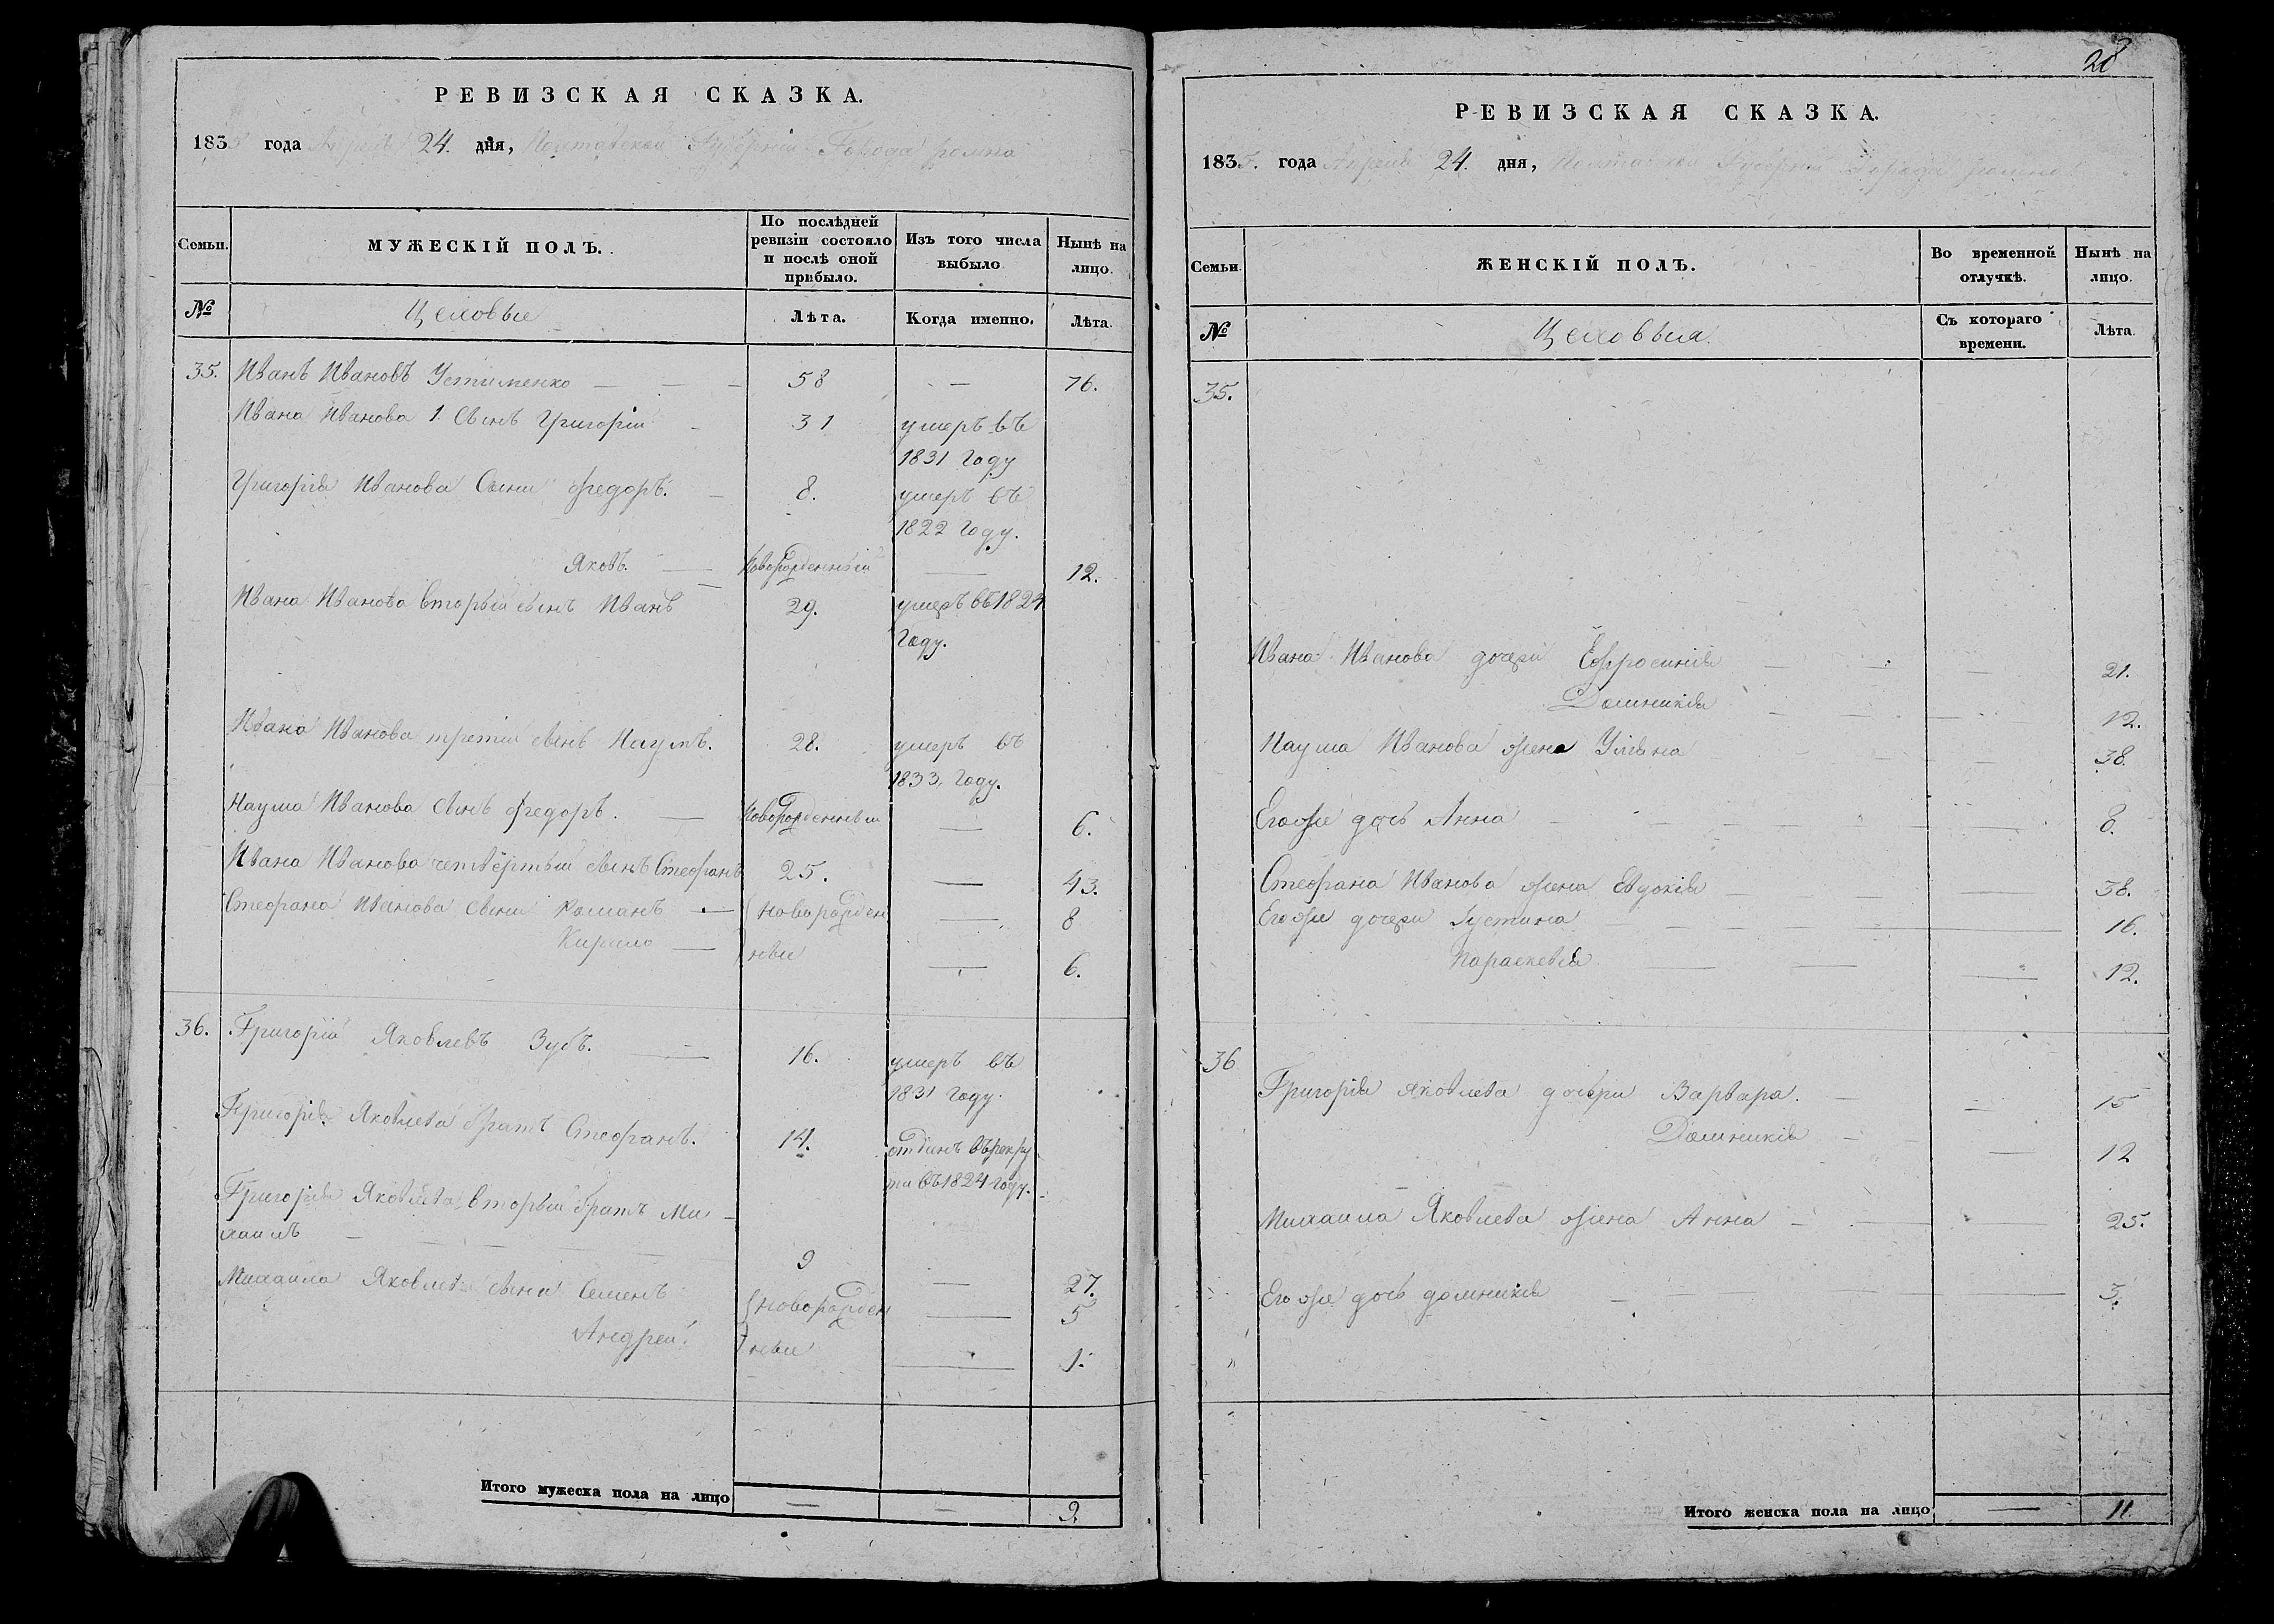 РЕВИЗСКАЯ СКАЗКА.
1835 года Апреля 24. дня, Полтавской Губерніи Города Ромна
Семьи.
МУЖЕСКІЙ ПОЛЪ.
По послѣдней ревизіи состояло и послѣ оной прибыло.
Изъ того числа выбыло
Нынѣ на лицо.
№
Цеховые
Лѣта.
Когда именно.
Лѣта.
35. Иванъ Ивановъ Устименко — — — 58 — 76.
Ивана Иванова 1. сынъ Григорій — 31 умеръ въ
1831 году
Григорія Иванова сыни Федоръ. — 8. умеръ въ
1822 году.
Яковъ. — Новорожденный — 12.
Ивана Иванова вторый сынъ Иванъ — 29. умеръ въ 1824
году.
Ивана Иванова третій сынъ Наумъ. 28. умеръ въ
1833, году.
Наума Иванова сынъ Федоръ. — Новорожденный — 6.
Ивана Иванова четвёртый сынъ Стефанъ 25. — 43.
Стефана Иванова сыни Романъ — новорожден — 8
Кирило — ные — 6.
36. Григорій Яковлевъ Зубъ. — 16. умеръ въ
1831 году.
Григорія Яковлева братъ Стефанъ. 14. отдинъ въ рекру
ти въ 1824 году.
Григорія Яковлева вторый братъ Ми-
хаилъ — — — — 9 — 27.
Михаила Яковлева сыни Семенъ новорожден — 5
Андрей. ные — 1.
Итого мужеска пола на лицо — — 9.
28
РЕВИЗСКАЯ СКАЗКА.
1835. года Апреля 24. дня, Полтавской Губерніи Города Ромна
Семьи.
ЖЕНСКІЙ ПОЛЪ.
Во временной отлучкѣ.
Нынѣ на лицо.
№
Цеховыя.
Съ котораго времени.
Лѣта.
35.
Ивана Иванова дочери Ефросинія — — — 21.
Домникія — — — 12.
Наума Иванова жена Уліяна — — 38.
Егоже дочь Анна — — — 8.
Стефана Иванова жена Евдокія — — 38.
Егоже дочери Іустина — — — 16.
Параскевія — — — 12.
36
Григорія Яковлева дочери Варвара. — — 15
Домникія — — 12
Михаила Яковлева жена Анна — — — 25.
Егоже дочь Домникія — — — 3.
Итого женска пола на лицо — 11.